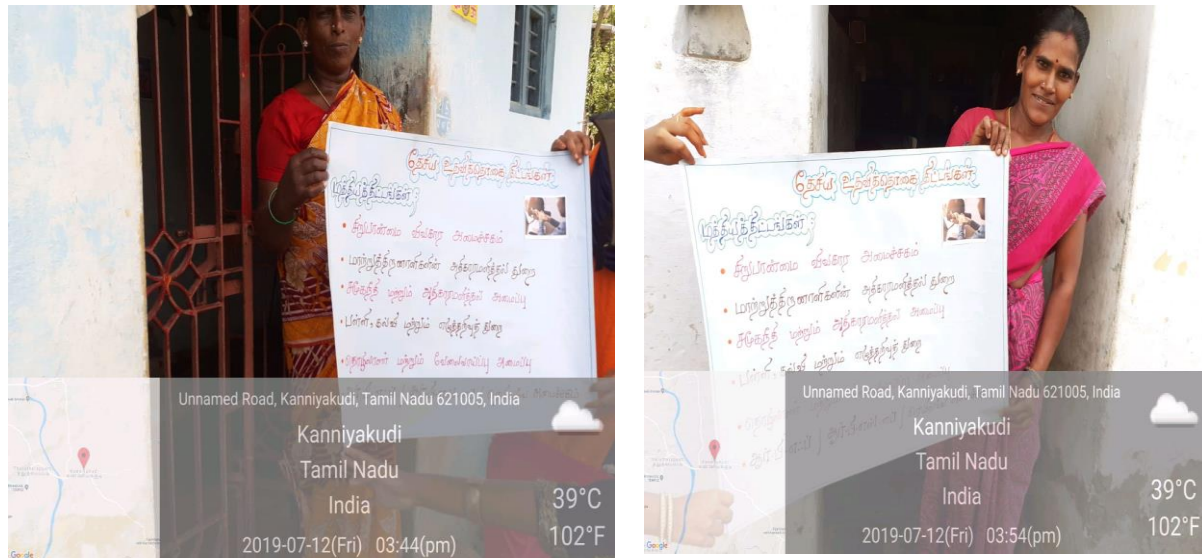 தேசிய உதவித்தொகை திட்டங்கள்
மத்தியத்திட்டங்கள்
• சிறுபான்மை விவகார அமைச்சகம்
• மாற்றுத்திறனாளிகளின் அதிகாரமளித்தல் துறை
• சமூகநீதி மற்றும் அதிகாரமளித்தல் அமைப்பு
• பள்ளி, கல்வி மற்றும் எழுத்தறிவுத் துறை
• தொழிலாளர் மற்றும் வேலைவாய்ப்பு அமைப்பு
Unnamed Road, Kanniyakudi, Tamil Nadu 621005, India
Kanniyakudi
Tamil Nadu
India
39°C
102°F
2019-07-12(Fri) 03:44(pm)
Google
தேசிய உதவித்தொகை திட்டங்கள்
மத்தியத்திட்டங்கள்
• சிறுபான்மை விவகார அமைச்சகம்
• மாற்றுத்திறனாளிகளின் அதிகாரமளித்தல் துறை
• சமூகநீதி மற்றும் அதிகாரமளித்தல் அமைப்பு
• பள்ளி, கல்வி மற்றும் எழுத்தறிவுத் துறை
Unnamed Road, Kanniyakudi, Tamil Nadu 621005, India
Kanniyakudi
Tamil Nadu
India
39°C
102°F
2019-07-12(Fri) 03:54(pm)
Google